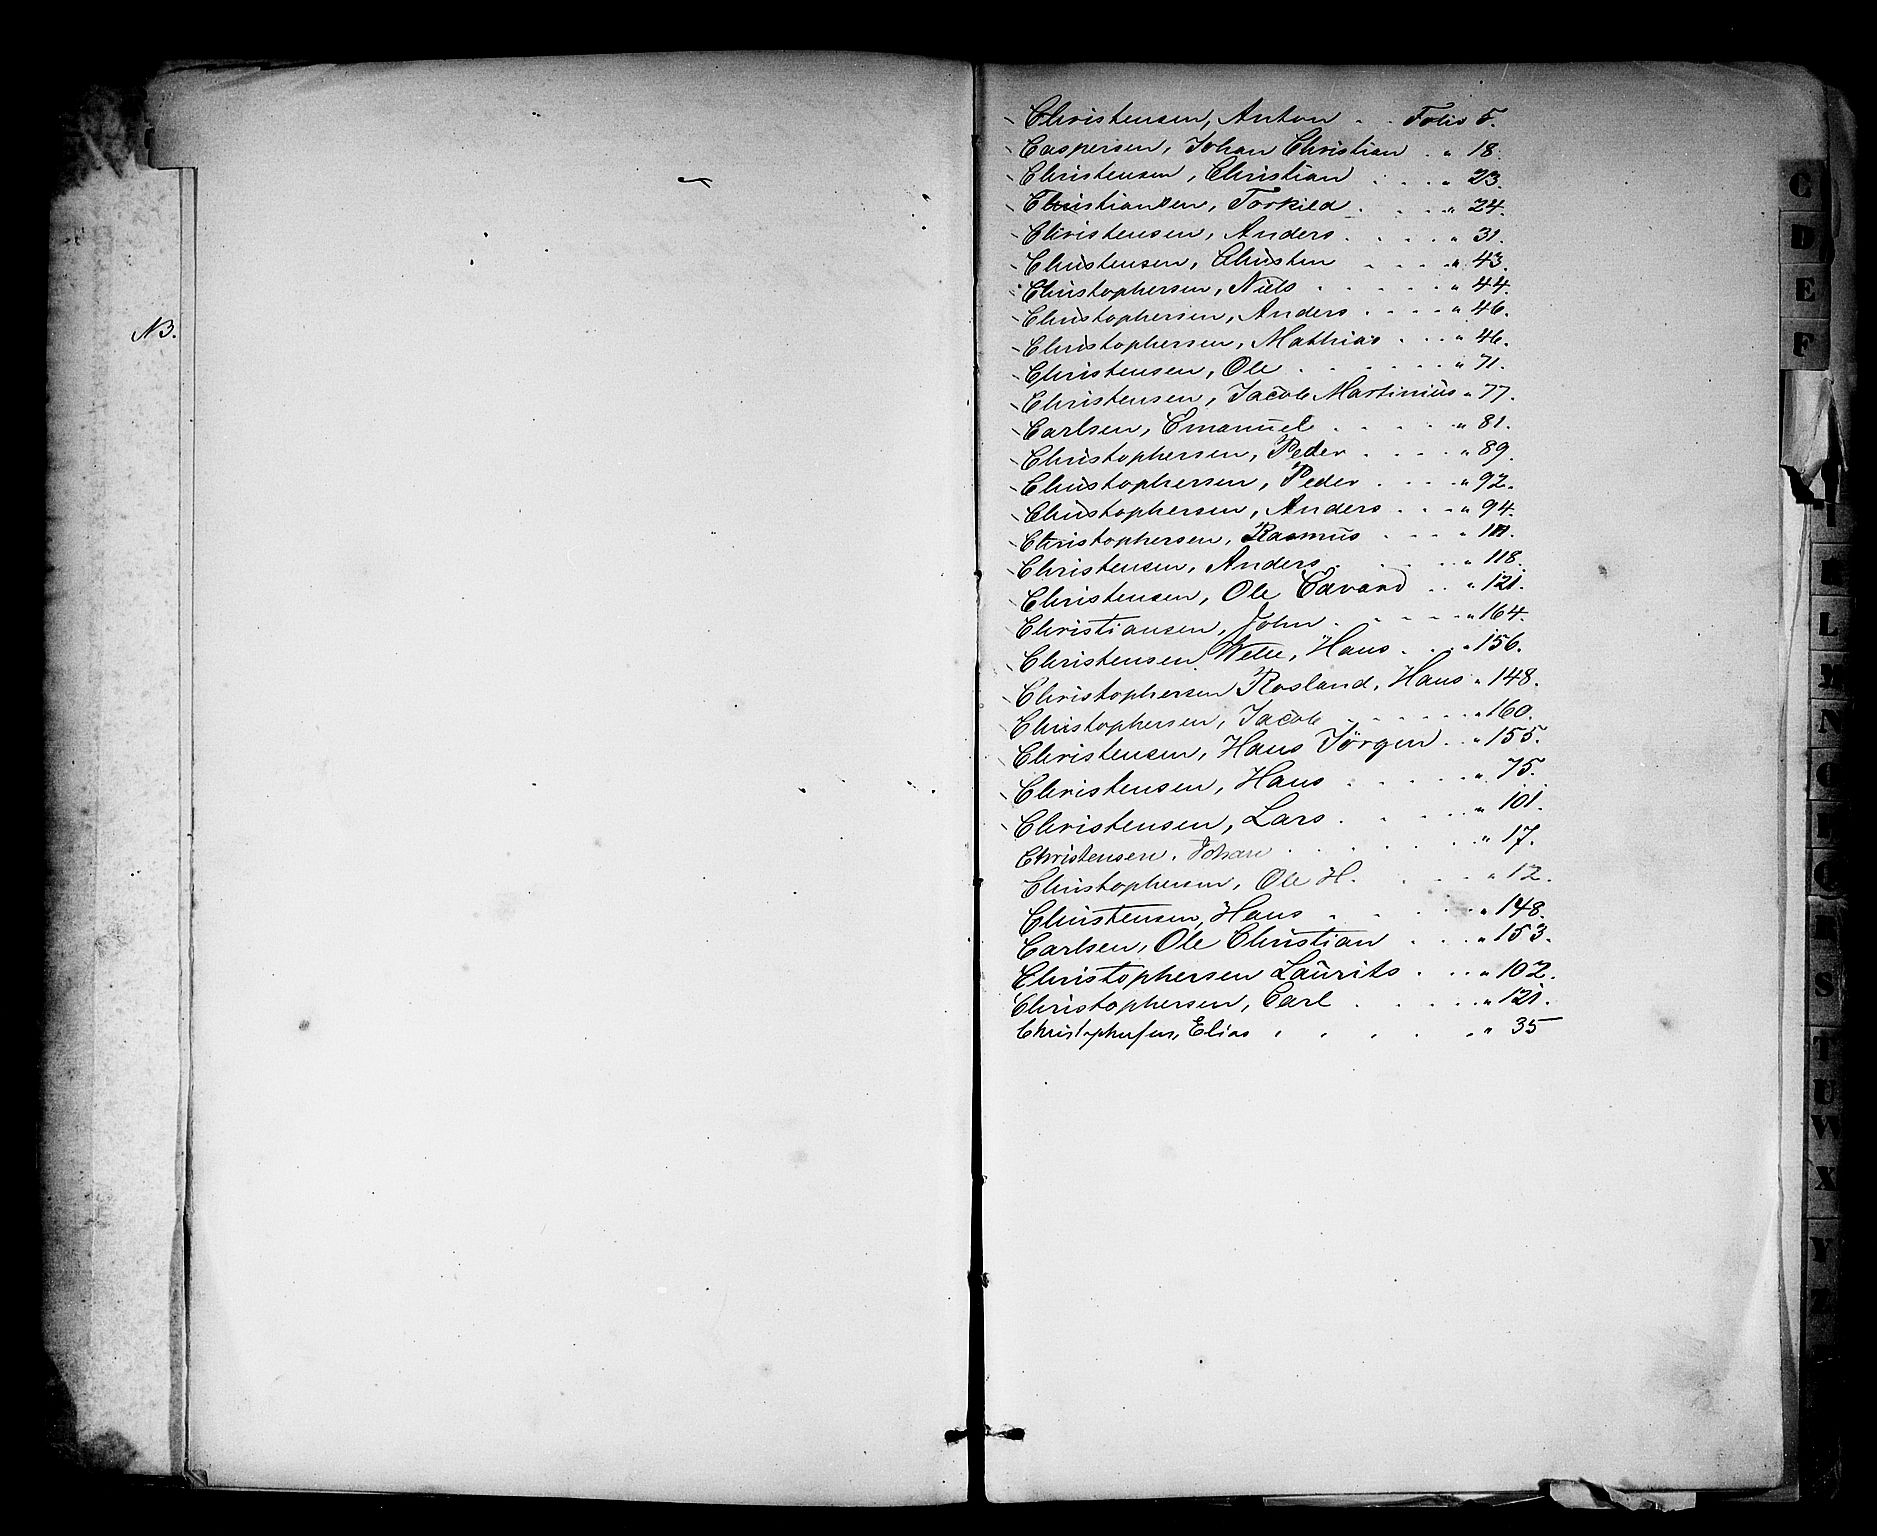 NB.
Christensen, Anton . . Folio 5.
Caspersen, Johan Christian . " 18.
Christensen, Christian . . . " 23.
Christiansen, Torkild . . . " 24.
Christensen, Anders . . . . " 31.
Christensen, Christen . . . " 43.
Christophersen, Niels . . . . . " 44.
Christophersen, Anders . . . . " 46.
Christophersen, Mathias . . . " 46.
Christensen, Ole . . . . . . " 71.
Christensen, Jacob Martinius " 77.
Carlsen, Emanuel . . . . . " 81.
Christophersen, Peder . . . . " 89.
Christophersen, Peder . . . . " 92.
Christophersen, Anders . . . " 94.
Christophersen, Rasmus . . . "
Christensen, Anders . . . . " 118.
Christensen, Ole Edvard . . " 121.
Christiansen, John . . . . . " 164.
Christensen Welle, Hans . . . " 156.
Christophersen Rosland, Hans " 148.
Christophersen, Jacob . . . . . . " 160.
Christensen, Hans Jörgen . . " 155.
Christensen, Hans . . . . . " 75.
Christensen, Lars . . . . . " 101.
Christensen, Johan . . . . . . " 17.
Christophersen, Ole H. . . . " 12.
Christensen, Hans . . . . . " 148.
Carlsen, Ole Christian . . . " 153.
Christophersen Laurits . . . . " 102.
Christophersen, Carl . . . . . " 121.
Christophersen, Elias . . . . . " 35
C
D
E
F
I
L
M
N
O
P
Q
R
S
T
U
W
X
Y
Z